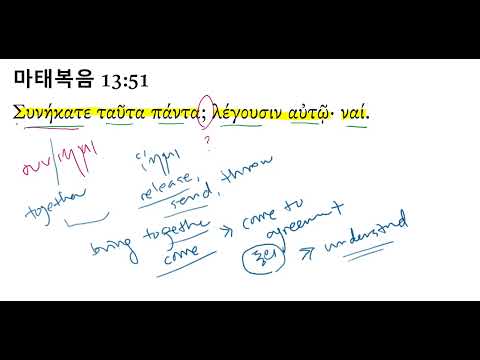 마태복음 13:51
Συνήκατε ταῦτα πάντα; λέγουσιν αὐτῷ· ναί.
?
συν/ίημι ἵημι
together release,
send, throw
bring together ⇒ come to
come agreement
동의 ⇒ understand